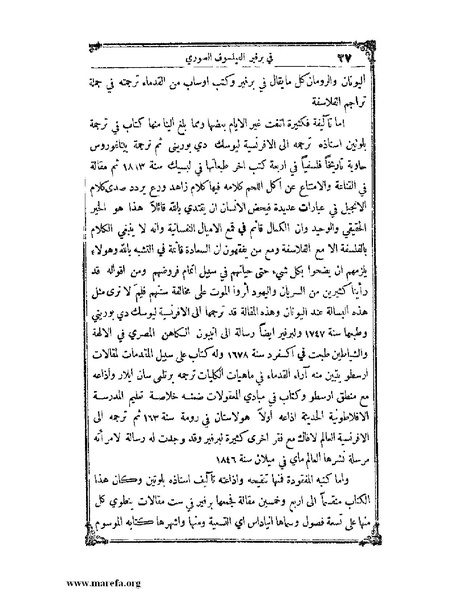 ٣٧ في برفير الفيلسوف الصوري
اليونان والرومان كل مايقال في برفير وكتب اوساب من القدماء ترجمته في جملة
تراجم الفلاسفة
اما تآليفه فكثيرة اتت غير الايام بعضها ومما بلغ الينا منها كتاب في ترجمة
بلوتين استاذه ترجمه الى الافرنسية ليوسك دي بوريني ثم ترجمة بيتاغوروس
حاوية تاريخاً فلسفياً في اربعة كتب اخر طبعاتها في ليبسيك سنة ١٨١٣ ثم مقالة
في القناعة والامتناع عن اكل اللحم كلامه فيها كلام زاهد ورع يردد صدى كلام
الانجيل في عبارات عديدة فيحض الانسان ان يقتدي بالله قائلاً هذا هو الخير
الحقيقي والوحيد وان الكمال قائم في قمع الاميال النفسانية وانه لا ينبغي الكلام
بالفلسفة الا مع الفلاسفة ومع من يفقهون ان السعادة قائمة في التشبه بالله وهولاء
يلزمهم ان يضحوا بكل شيء حتى حياتهم في سبيل اتمام فروضهم ومن اقواله قد
رأينا كثيرين من السريان واليهود آثروا الموت على مخالفة سننهم فقلما لا ترى مثل
هذه البسالة عند اليونان وهذه المقالة قد ترجمها الى الافرنسية ليوسك دي بوريني
وطبعها سنة ١٧٤٧ ولبرفير ايضاً رسالة الى انيبون الكاهن المصري في الالهة
والشياطين طبعت في اكسفرد سنة ١٦٧٨ وله كتاب على سبيل المقدمات لمقالات
ارسطو يتبين منه آراء القدماء في ماهيات الكليات ترجمه برتلمي سان ايلار واذاعه
مع منطق ارسطو وكتاب في مبادي المعقولات ضمنه خلاصة تعليم المدرسة
الافلاطونية الحديثة اذاعه اولاً هولاستان في رومة سنة ١٦٣ ثم ترجمه الى
الافرنسية العالم لافاك مع فقر اخرى كثيرة لبرفير وقد وجدت له رسالة لامرأته
مرسلة نشرها العالم ماي في ميلان سنة ١٨٤٦
واما كتبه المفقودة فمنها تنقيحه واذاعته تآليف استاذه بلوتين وكان هذا
الكتاب منقسماً الى اربع وخمسين مقالة فجمعها برفير في ست مقالات يحتوي كل
منها على تسعة فصول وسماها انياداس اي التسعية ومنها واشهرها كتابه الموسوم
www.marefa.org